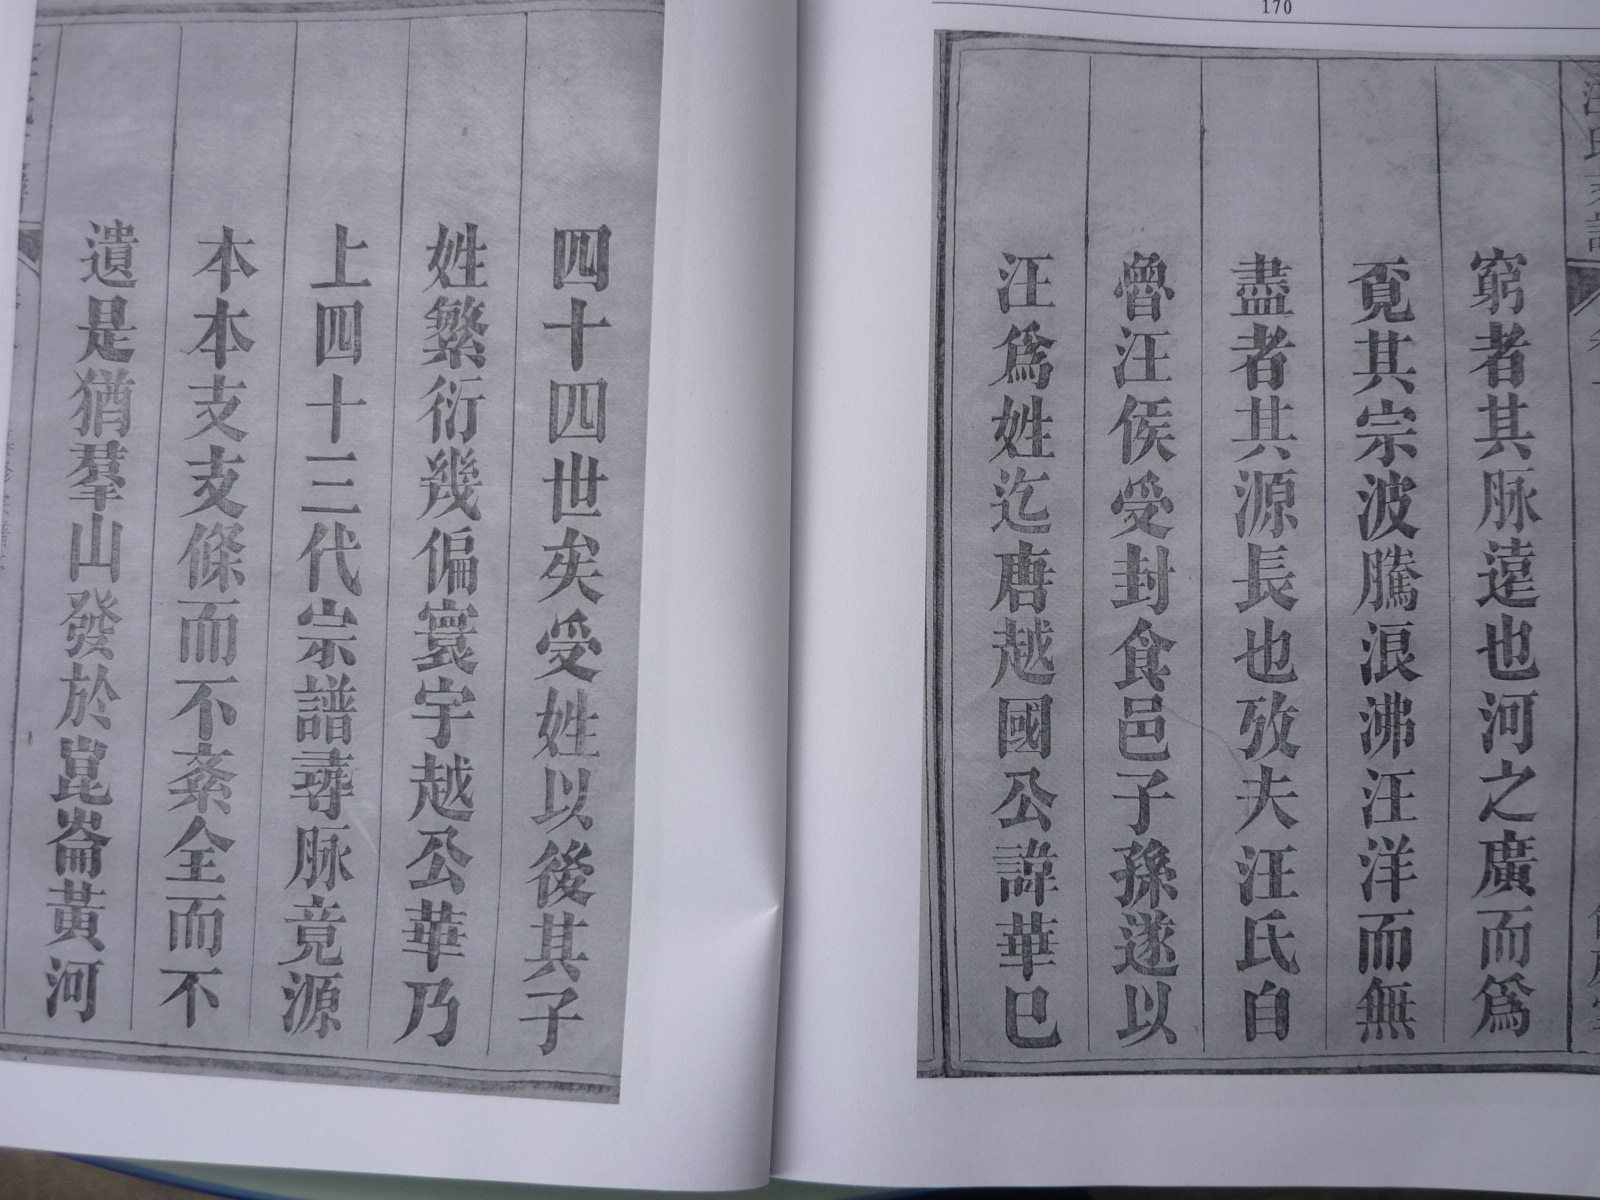 170
窮者其脉遠也河之廣而爲
覔其宗波騰浪沸汪洋而無
盡者其源長也攷夫汪氏自
魯汪侯受封食邑子孫遂以
汪爲姓迄唐越國公諱華巳
四十四世矣受姓以後其子
姓繁衍幾偏寰宇越公華乃
上四十三代宗譜尋脉竟源
本本支支條而不紊全而不
遺是猶羣山發於崑崙黃河